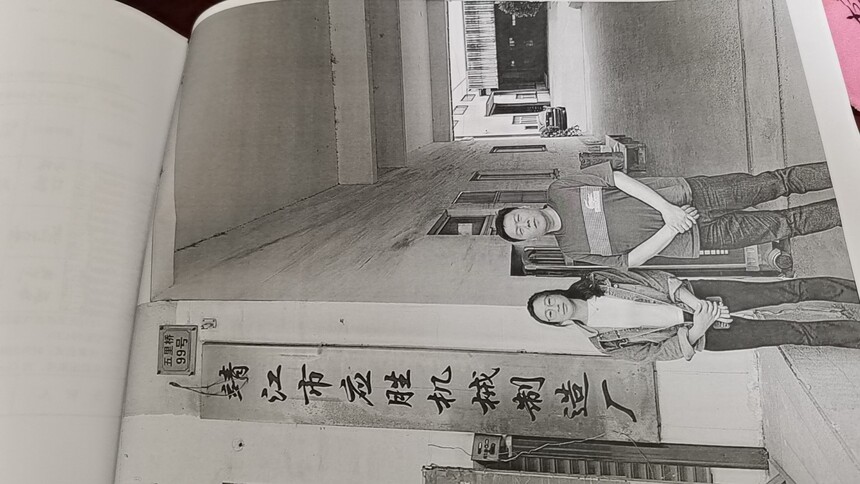 五里桥
99号
靖江市应胜机械制造厂